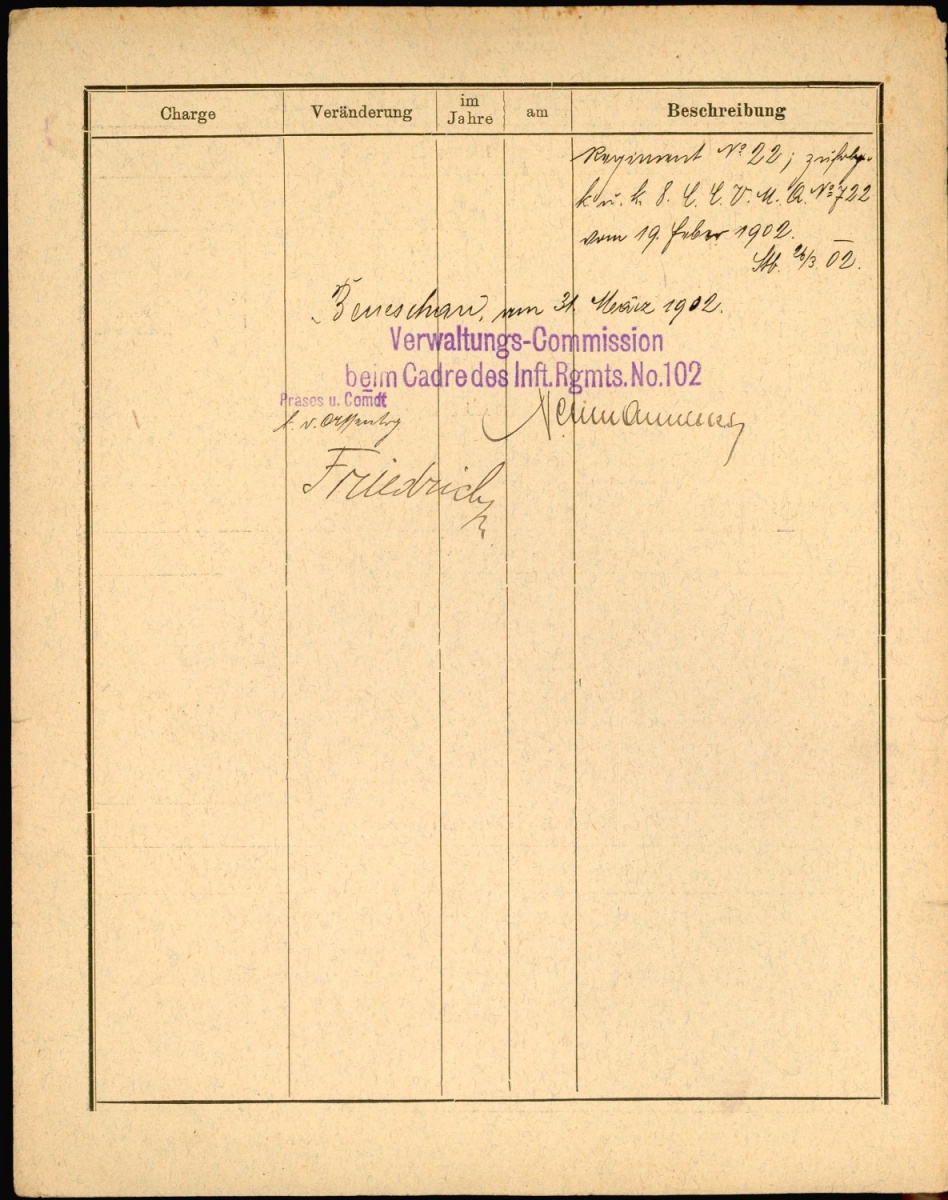 Charge Veränderung im Jahre am Beschreibung
Regiment No 22; zufolge
k. u. k. 8. C. C. V. M. A. No 722
vom 19. Feber 1902.
Stb. 26/3. 02.
Beneschau, am 31. Maerz 1902.
Verwaltungs-Commission
beim Cadre des Inft. Rgmts. No. 102
Präses u. Com̄dt
Friedrich